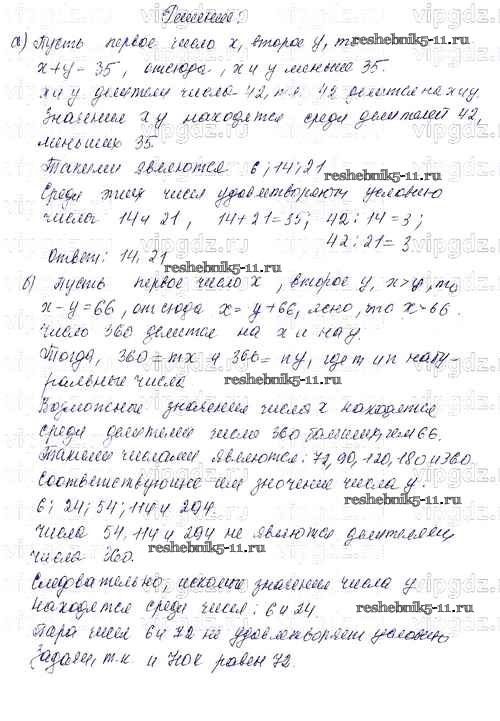 Решение:
а) Пусть первое число x, второе y, то
x+y=35, отсюда, x и y меньше 35.
x и y делители числа 42, т.к. 42 делится на x и y.
Значение x y находятся среди делителей 42,
меньших 35.
Такими являются 6; 14; 21
Среди этих чисел удовлетворяют условию
числа 14 и 21, 14+21=35; 42:14=3;
42:21=3
Ответ: 14, 21
б) Пусть первое число x, второе y, x>y, то
x-y=66, отсюда x=y+66, ясно, что x>66.
Число 360 делится на x и на y.
Тогда, 360=mx и 366=ny, где m и n нату-
ральные числа
Возможное значение числа x находятся
среди делителей число 360 больших, чем 66.
Такими числами являются: 72, 90, 120, 180 и 360
Соответствующие им значение числа y:
6; 24; 54; 114 и 294.
Числа 54, 114 и 294 не являются делителями
числа 360.
Следовательно, искомые значения числа y
находятся среди чисел: 6 и 24.
Пара чисел 6 и 72 не удовлетворяет условию
задачи, т.к. и НОК равен 72.
reshebnik5-11.ru
reshebnik5-11.ru
reshebnik5-11.ru
reshebnik5-11.ru
reshebnik5-11.ru
reshebnik5-11.ru
reshebnik5-11.ru
vipgdz.ru